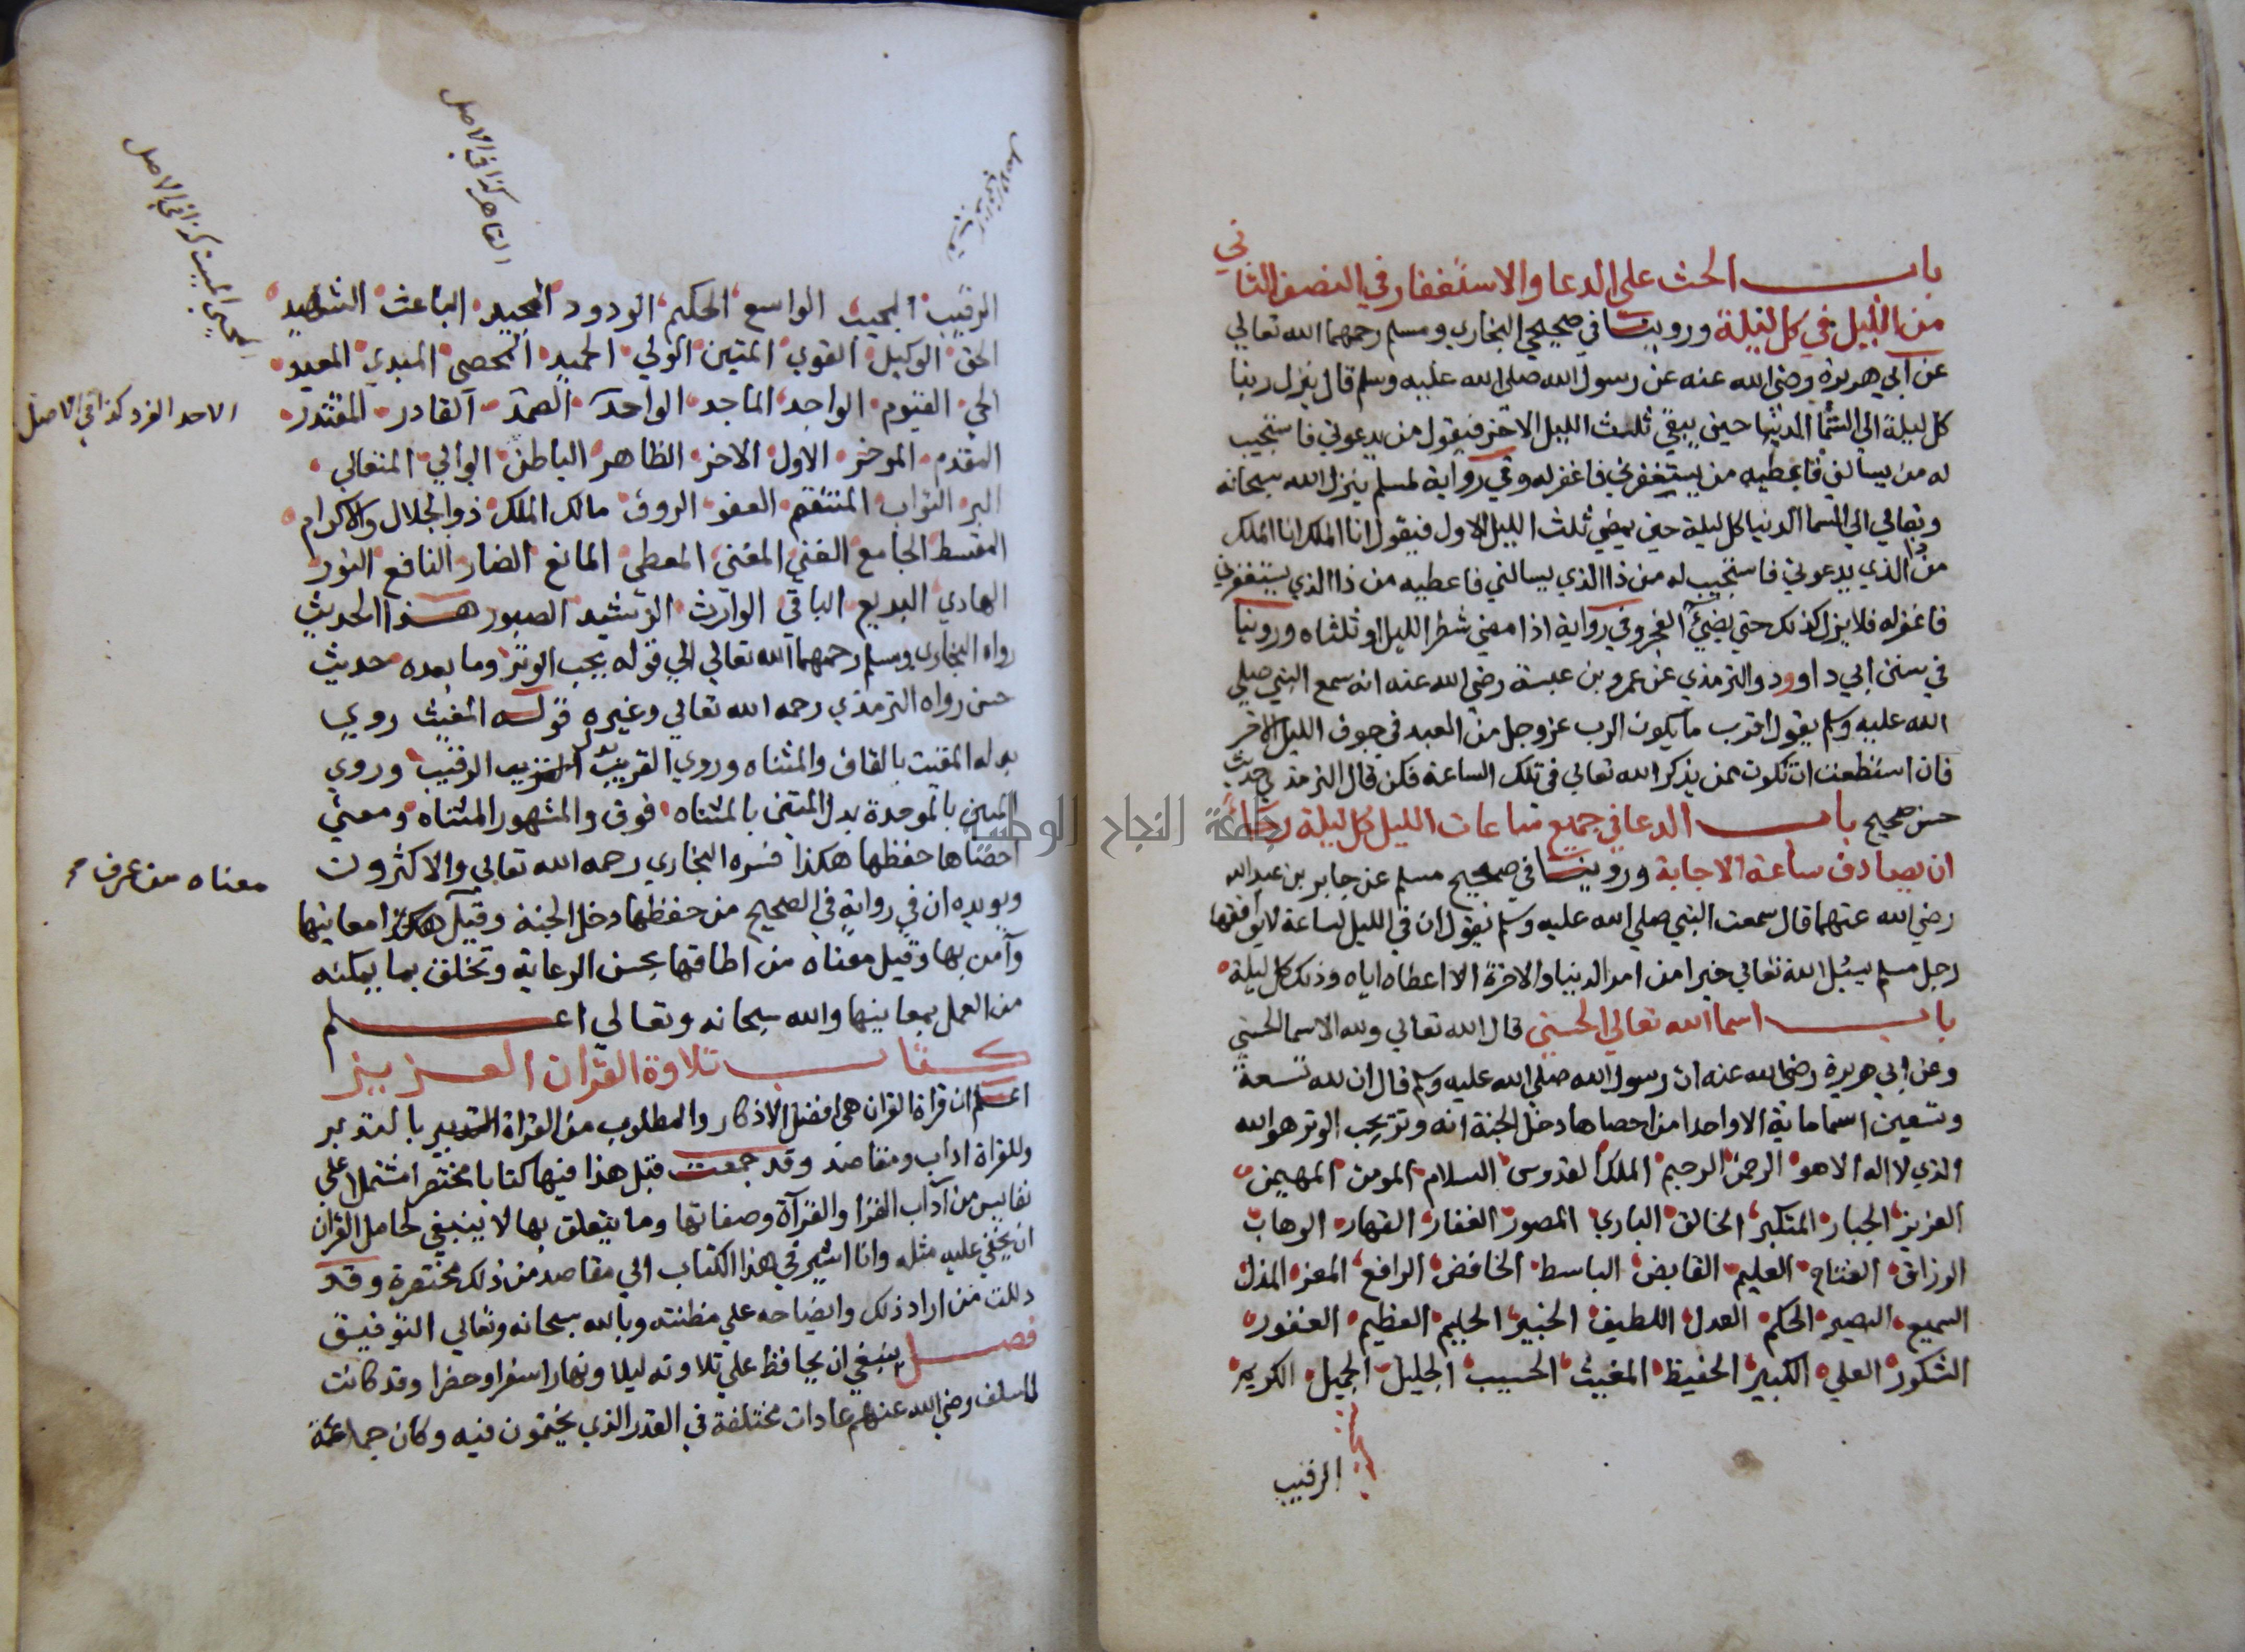 باب الحث على الدعا والاستغفار في النصف الثاني
من الليل في كل ليلة وروينا في صحيحي البخاري ومسلم رحمهما الله تعالي
عن ابي هريرة رضي الله عنه عن رسول الله صلي الله عليه وسلم قال ينزل ربنا
كل ليلة الي السما الدنيا حين يبقي ثلث الليل الاخر فيقول من يدعوني فاستجيب
له من يسالني فاعطيه من يستغفرني فاغفر له وفي رواية لمسلم ينزل الله سبحانه
وتعالي الي السما الدنيا كل ليلة حين يمضي ثلث الليل الاول فيقول انا الملك انا الملك
من ذا الذي يدعوني فاستجيب له من ذا الذي يسالني فاعطيه من ذا الذي يستغفرني
فاغفر له فلا يزال كذلك حتي يضيئ الفجر وفي رواية اذا مضي شطر الليل او ثلثاه وروينا
في سنن ابي داوود والترمذي عن عمرو بن عبسة رضي الله عنه انه سمع النبي صلي
الله عليه وسلم يقول اقرب ما يكون الرب عز وجل من العبد في جوف الليل الاخر
فان استطعت ان تكون ممن يذكر الله تعالي في تلك الساعة فكن قال الترمذي حديث
حسن صحيح باب الدعا في جميع ساعات الليل كل ليلة رجاأ
ان يصادف ساعة الاجابة وروينا في صحيح مسلم عن جابر بن عبد الله
رضي الله عنهما قال سمعت النبي صلي الله عليه وسلم يقول ان في الليل لساعة لا يوافقها
رجل مسلم يسئل الله تعالي خيرا من امر الدنيا والاخرة الا اعطاه اياه وذلك كل ليلة
باب اسما الله تعالي الحسني قال الله تعالي ولله الاسما الحسني
وعن ابي هريرة رضي الله عنه ان رسول الله صلي الله عليه وسلم قال ان لله تسعة
وتسعين اسما ماية الا واحدا من احصاها دخل الجنة انه وتر يحب الوتر هو الله
الذي لا اله الا هو الرحمن الرحيم الملك القدوس السلام المومن المهيمن
العزيز الجبار المتكبر الخالق الباري المصور الغفار القهار الوهاب
الرزاق الفتاح العليم القابض الباسط الخافض الرافع المعز المذل
السميع البصير الحكم العدل اللطيف الخبير الحليم العظيم الغفور
الشكور العلي الكبير الحفيظ المغيث الحسيب الجليل الجميل الكريم
الرقيب
القاهر كذا في الاصل
المحيي المميت كذا في الاصل
الرقيب المجيب الواسع الحكيم الودود المجيد الباعث الشهيد
الحق الوكيل القوي المتين الولي الحميد المحصي المبدي المعيد
الحي القيوم الواجد الماجد الواحد الصمد القادر المقتدر
الاحد الفرد كذا في الاصل
المقدم الموخر الاول الاخر الظاهر الباطن الوالي المتعالي
البر التواب المنتقم العفو الروف مالك الملك ذو الجلال والاكرام
المقسط الجامع الغني المغني المعطي المانع الضار النافع النور
الهادي البديع الباقي الوارث الرشيد الصبور هذا الحديث
رواه البخاري ومسلم رحمهما الله تعالي الي قوله يحب الوتر وما بعده حديث
حسن رواه الترمذي رحمه الله تعالي وغيره قوله المغيث روي
بدله المقيت بالقاف والمثناه وروي القريب بدل الرقيب وروي
المبين بالموحدة بدل المتين بالمثناه فوق والمشهور المثناه ومعني
احصاها حفظها هكذا فسره البخاري رحمه الله تعالي والاكثرون
ويويده ان في رواية في الصحيح من حفظها دخل الجنة وقيل معانيها
معناه من عرف
وآمن بها وقيل معناه من اطاقها بحسن الرعاية وتخلق بما يمكنه
من العمل بمعانيها والله سبحانه وتعالي اعلم
كتاب تلاوة القران العزيز
اعلم ان قراة القران هي افضل الاذكار والمطلوب من القراة بالتدبر
وللقراة اداب ومقاصد وقد جمعت قبل هذا فيها كتابا مختصرا مشتملا علي
نفايس من آداب القرا والقرآة وصفاتها وما يتعلق بها لا ينبغي لحامل القران
ان يخفي عليه مثله وانا اشير في هذا الكتاب الي مقاصد من ذلك مختصرة وقد
دللت من اراد ذلك وايضاحه علي مظنته وبالله سبحانه وتعالي التوفيق
فصل ينبغي ان يحافظ علي تلاوته ليلا ونهارا سفرا وحضرا وقد كانت
للسلف رضي الله عنهم عادات مختلفة في القدر الذي يختمون فيه وكان جماعة
جامعة النجاح الوطنية